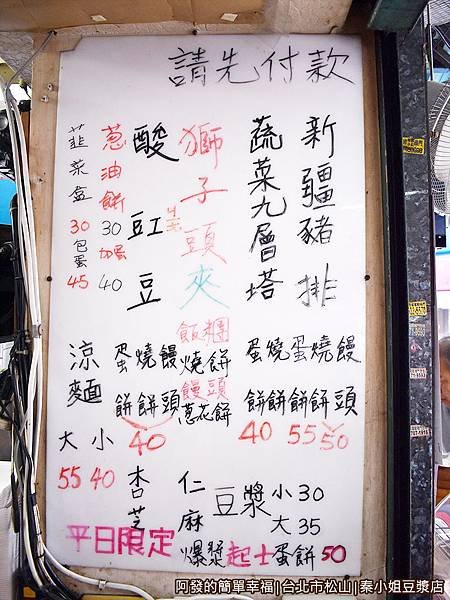 請先付款
新疆豬排
蛋燒蛋燒饅
餅餅餅餅頭
40 55 50
蔬菜九層塔
獅子頭夾
飯糰
燒餅
饅頭
蔥花餅
酸豇豆
蛋燒饅
餅餅頭
40
蔥油餅
30
加蛋
40
韮菜盒
30
包蛋
45
涼麵
大 小
55 40
平日限定
杏仁
芝麻
豆漿
小30
大35
爆漿起士蛋餅50
阿發的簡單幸福|台北市松山|秦小姐豆漿店